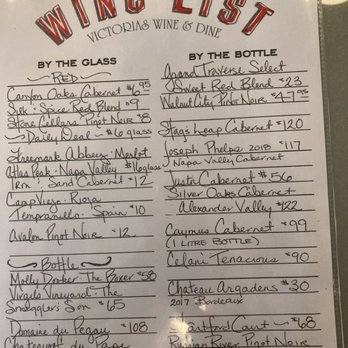 WINE LIST
VICTORIAS WINE & DINE
BY THE GLASS
RED
Canyon Oaks Cabernet $6.95
Silk: Spice Red Blend $9
Stone Cellars Pinot Noir $8
Daily Deal $6 glass
Freemark Abbey: Merlot
Atlas Peak: Napa Valley $16 glass
Iron: Sand Cabernet $12
Campo Viejo: Rioja
Tempranillo: Spain $10
Avalon Pinot Noir $12
Bottle
Molly Dooker: The Boxer $58
Virado Vineyard: The
Smuggler's Son $65
Domaine du Pegau $108
Chateauneuf du Pape
BY THE BOTTLE
Grand Traverse Select
Sweet Red Blend $23
Walnut City Pinot Noir $47.95
Stag's Leap Cabernet $120
Joseph Phelps 2018 $117
Napa Valley Cabernet
Justin Cabernet $56
Silver Oaks Cabernet
Alexander Valley $122
Caymus Cabernet $99
(1 LITRE BOTTLE)
Celani Tenacious $90
Chateau Argadens $30
2017 Bordeaux
Hartford Court $68
Russian River Pinot Noir